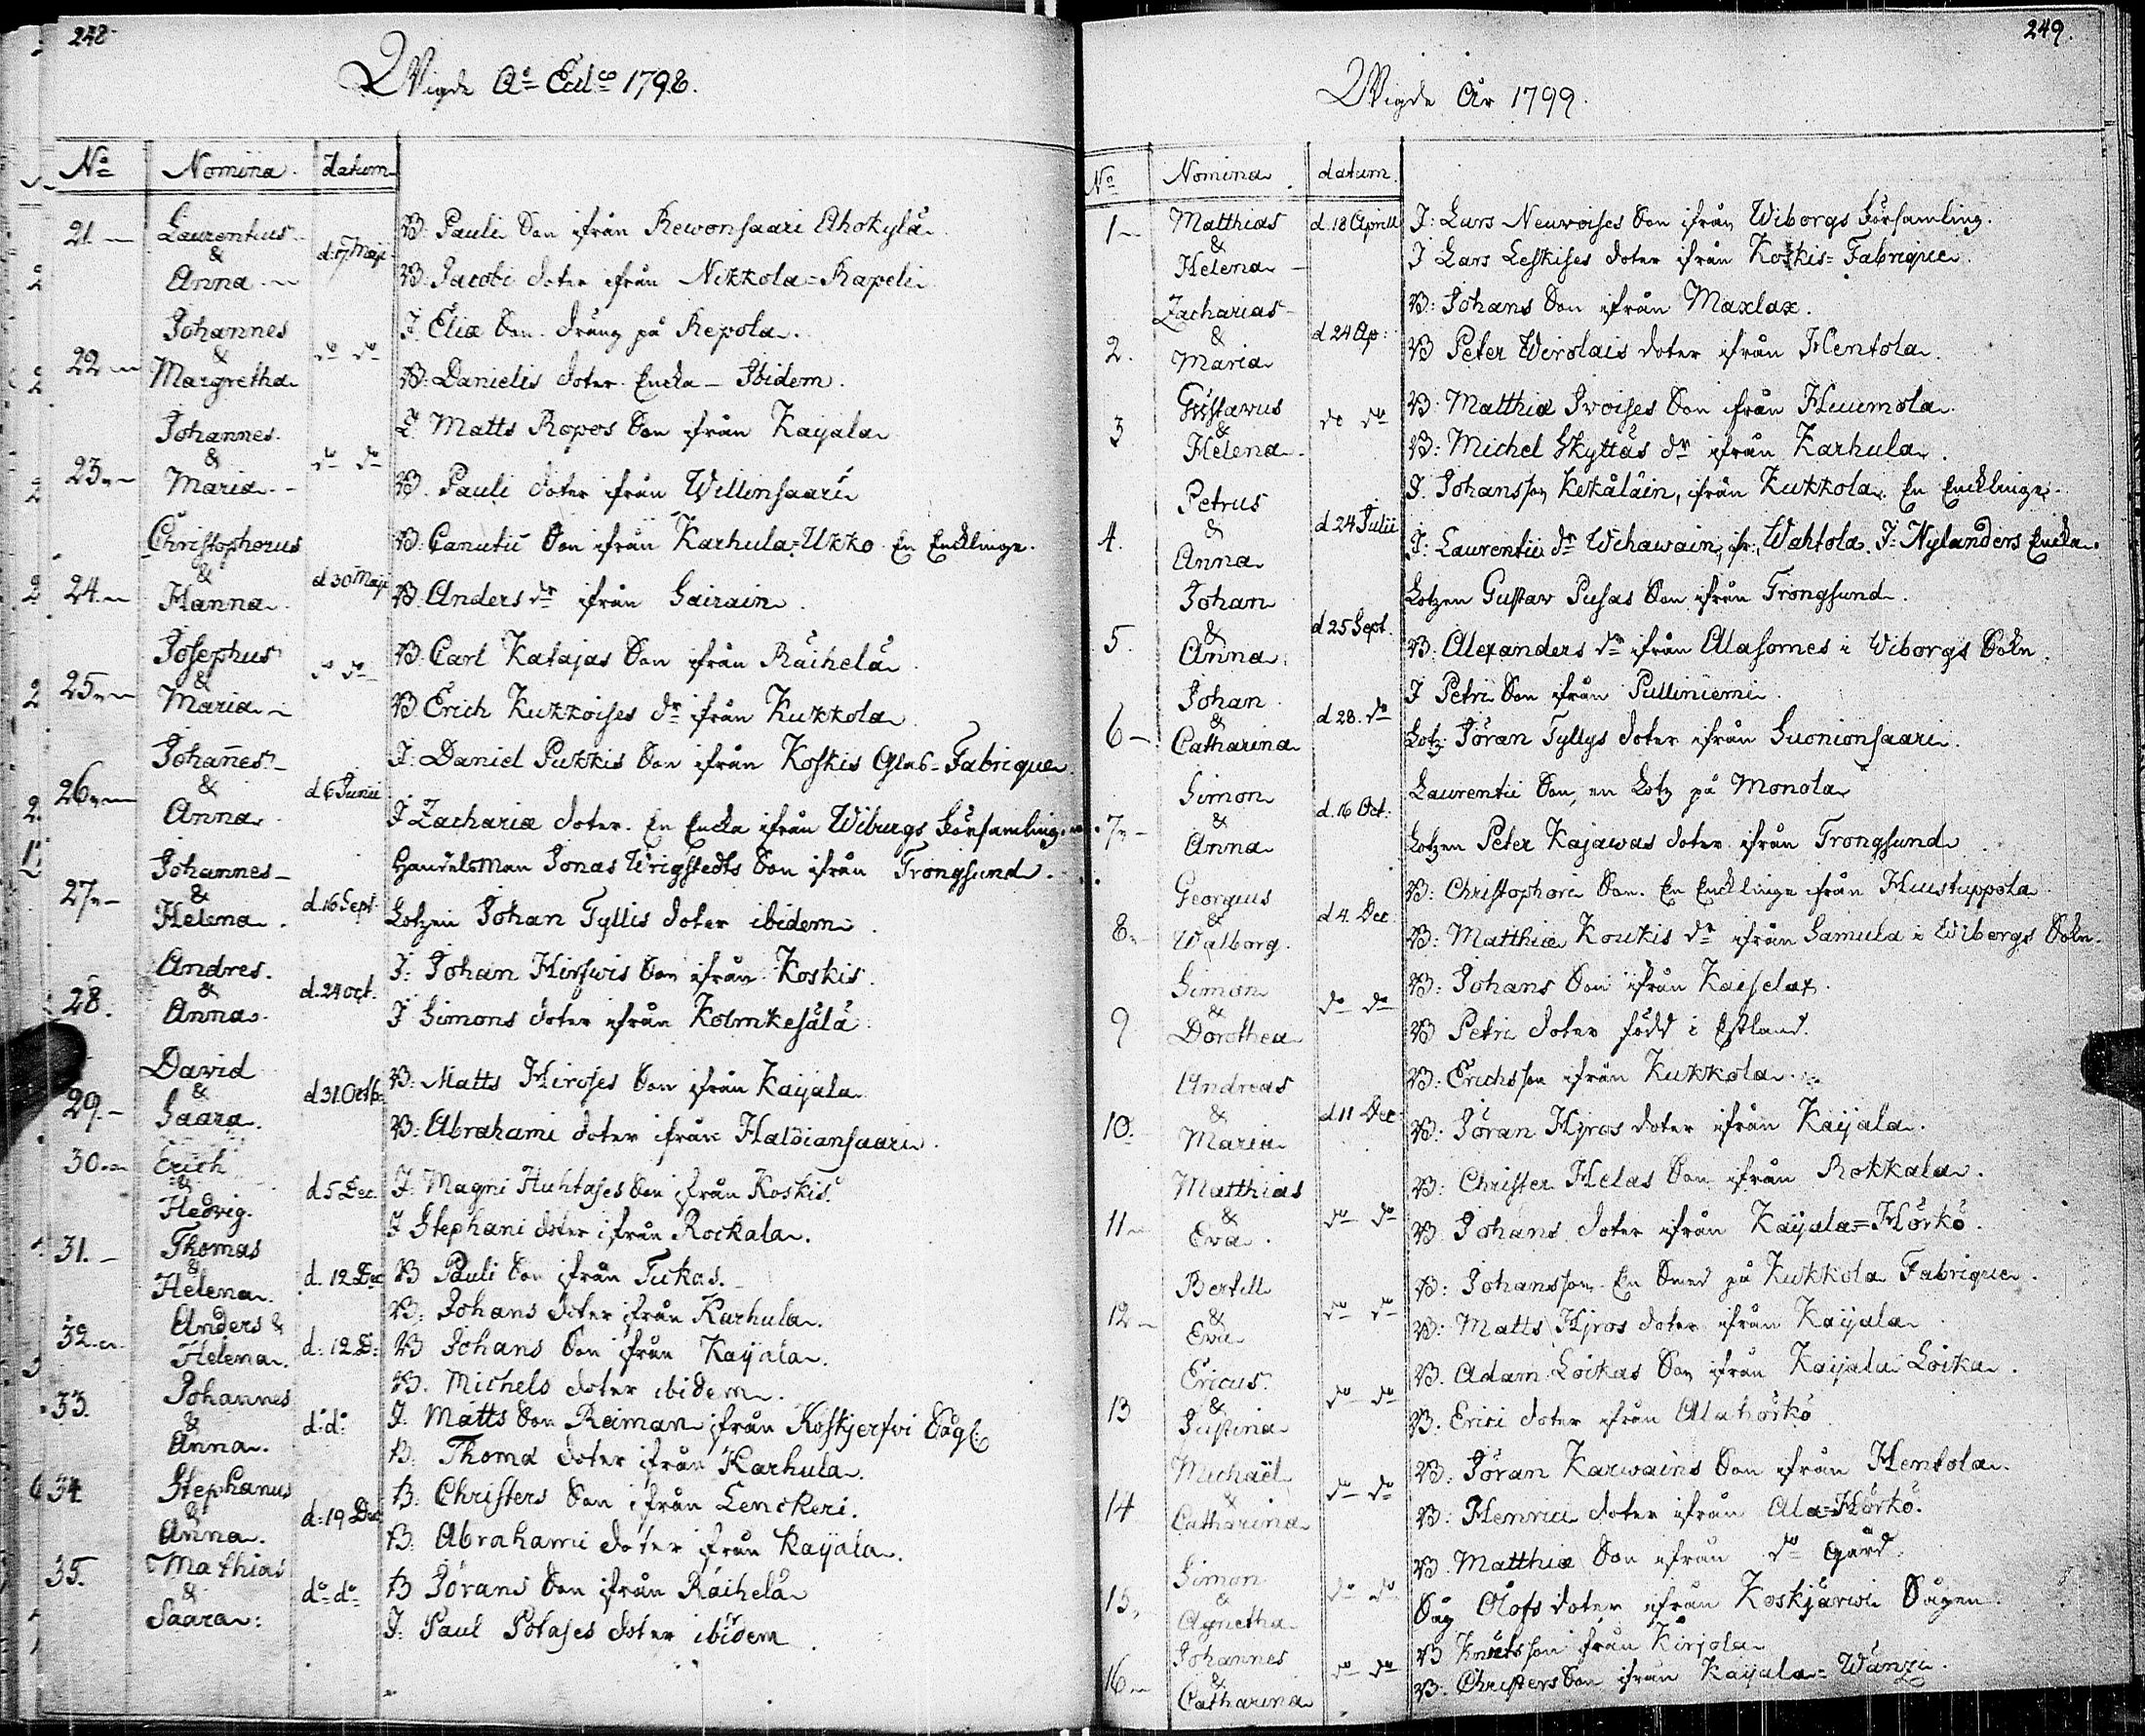 248
Wigde Ao Eodco 1798.
No Nomina. datum
21 Laurentus & Anna d: 17 Maji
B. Pauli Son ifrån Rewonsaari Ahokylä
B. Jacobi doter ifrån Nikkola=Kapeli
22 Johannes & Margretha do do
I. Eliæ Son. dräng på Repola.
B: Danielis doter. Encka - Ibidem.
23 Johannes. & Maria do do
I Matts Ropos Son ifrån Kayala
B. Pauli doter ifrån Willinsaari
24 Christophorus & Hanna d 30 Maji
B. Canutii Son ifrån Karhula=Ukko En Encklinge.
B. Anders dr ifrån Sairain.
25 Josephus & Maria do do
B. Carl Katajas Son ifrån Räihelä
B. Erich Kukkoises dr ifrån Kukkola
26 Johañes & Anna d 6 Junii
I: Daniel Pukkis Son ifrån Koskis Glas=Fabrique
I Zachariæ doter. En Encka ifrån Wiburgs Församling.
27 Johannes & Helena. d. 16 Sept
Handelsman Jonas Wrigstedts Son ifrån Trongsund.
Lotzen Johan Tyllis doter ibidem.
28. Andres. & Anna. d. 24 oct.
I: Johan Hirswis Son ifrån Koskis.
I Simons doter ifrån Kolmkesälä
29. David & Saara. d 31. Octb:
B: Matts Hiroses Son ifrån Kaijala
B: Abrahami doter ifrån Haldiansaari.
30 Erich & Hedvig. d 5 Dec.
I: Magni Huhtases Son ifrån Koskis.
I Stephani doter ifrån Rockala.
31. Thomas & Helena. d. 12 Dec
B Pauli Son ifrån Tukas.
B: Johans doter ifrån Karhula.
32. Anders & Helena. d: 12 D:
B Johans Son ifrån Kaijala.
B. Michels doter ibidem.
33. Johannes & Anna. d:o d:o
I. Matts Son Reiman ifrån Koskjerfvi Såg
B. Thomæ doter ifrån Karhula.
34 Stephanus & Anna. d: 19 Dec
B: Christers Son ifrån Lenckeri.
B. Abrahami doter ifrån Kaijala.
35. Mathias & Saara: do do
B Jörans Son ifrån Räihelä
I: Paul Potases doter ibidem.
249.
Wigde År 1799.
No Nomina. datum.
1 Matthias & Helena d. 18 Aprill
I: Lars Neuvoises Son ifrån Wiborgs Församling.
I Lars Leskises doter ifrån Koskis=Fabrique.
2. Zacharias & Maria d 24 Ap:
B: Johans Son ifrån Maxlax.
B Peter Wirolais doter ifrån Hentola.
3 Gustavus & Helena do do
B. Matthiæ Ivoises Son ifrån Huumola.
B: Michel Skyttäs dr ifrån Karhula.
4. Petrus & Anna d 24 Julii
I. Johansson Kekäläin, ifrån Kukkola. En Encklinge.
I: Laurentii dr Wihawain, ifr: Wahtola. I: Nylanders Encka.
5. Johan & Anna. d 25 Sept.
Lotzen Gustav Pusas Son ifrån Trongsund.
B. Alexanders dr ifrån Alasomes i Wiborgs Sokn.
6 Johan & Catharina d 28. do
I Petri Son ifrån Pulliniemi.
Lotz: Jöran Tyllys doter ifrån Suonionsaari.
7 Simon & Anna d. 16 Oct:
Laurentii Son, en Lotz på Monola
Lotzen Peter Kajawas doter ifrån Trongsund
8 Georgius & Walborg. d 4. Dec
B: Christophori Son. En Encklinge ifrån Huustuppola
B: Matthiæ Koukis dr ifrån Samula i Wiborgs Sokn.
9 Simon & Dorothea do do
B: Johans Son ifrån Kaiselax.
B Petri doter född i Estland.
10. Andreas & Maria d 11 Dec
B: Erichsson ifrån Kukkola.
B: Jöran Hjros doter ifrån Kaijala.
11 Matthias & Eva. do do
B: Christer Helas Son ifrån Rokkala.
B Johans doter ifrån Kaijala=Hörkö.
12 Bertill & Eva do do
B: Johansson. En Smed på Kukkola Fabrique.
B: Matts Hjros doter ifrån Kaijala
13 Ericus. & Justina do do
B. Adam Loikas Son ifrån Kaijala Loika.
B. Erici doter ifrån Alahörkö
14 Michaël & Catharina do do
B: Jöran Karwains Son ifrån Hentola.
B: Henrici doter ifrån Ala=Hörkö.
15. Simon & Agnetha do do
B. Matthiæ Son ifrån do Gård.
Såg Olofs doter ifrån Koskjärwi Sågen.
16 Johannes & Catharina do do
B Knutsson ifrån Kirjola
B. Christers Son ifrån Kaijala=Wänzi.